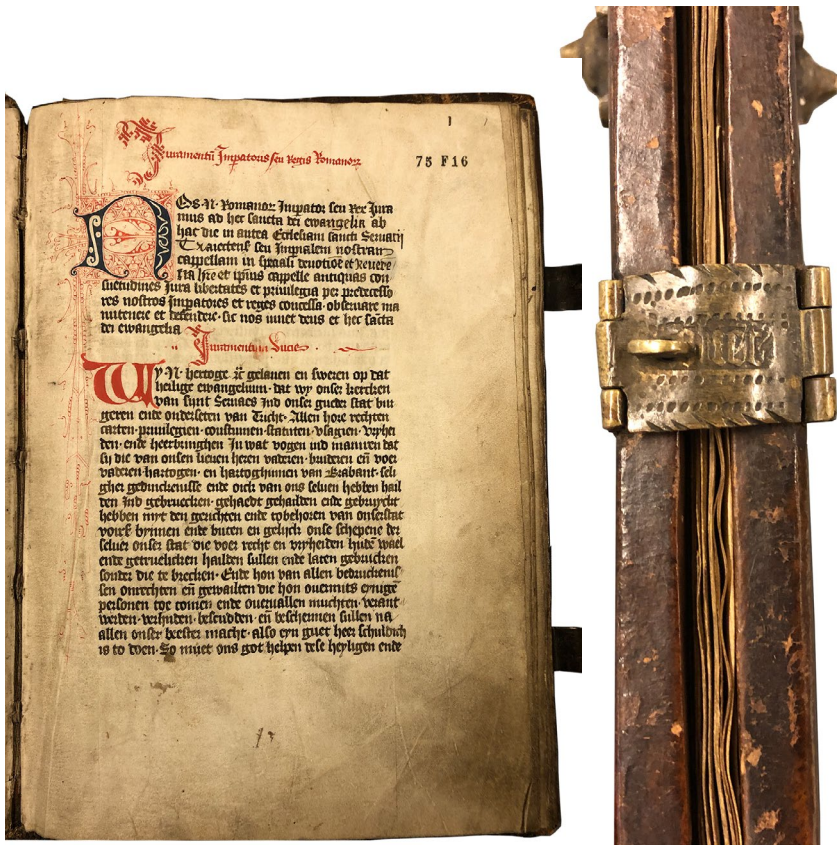 1
Juramentū Impatoris seu Regis Romanoꝝ
75 F16
NOs .N. Romanoꝝ Impator seu Rex Jura
mus ad hec sancta dei ewangelia ab
hac die in antea Ecclesiam sancti Seruatij
Traiecteñ seu Impialem nostram
cappellam in spẽali deuotiõe et Reuere
tia hr̃e et ipius cappelle antiquas con
suetudines Jura libertates et priuilegia per predecesso
res nostros Impatores et reges concessa obseruare ma
nutenere et defendere. sic nos iuuet deus et hec sãcta
dei ewangelia
Juramentum Ducis
WY .N. hertoge ꝛc̃ gelauen en sweren op dat
heilige ewangelium. dat wy onser kercken
van sunt Seruaes Ind onser gueder stat bur
geren ende onderseten van Tricht. Allen hore rechten
carten. priuilegien. coustumen. statuten. vsagien. vryhei
den. ende heerbringhen In wat vogen ind maniren dat
sy die van onsen lieuen heren vaderen. bruderen eñ voer
vaderen. hartogen. en hartoghinnen van Brabant. seli
gher gedinckenisse ende oick van ons seluen hebben hail
den Ind gebruecken. gehaedt gehailden ende gebruyckt
hebben myt den gerichten ende tobehoren van onser stat
voirß bynnen ende buten en gelijck onse schepene der
seluer onser stat die voer recht en vryheiden hudẽ wael
ende getruelicken hailden sullen ende laten gebrucken
sonder die te brecken. Ende hon van allen bedruckenis
sen onrechten eñ gewailten die hon ouermits eynige
personen toe comen ende oueruallen muchten. verant
werden. verhuden. bescudden. eñ beschermen sullen na
allen onser beester macht. also eyn guet heer schuldich
is to doen. So müet ons got helpen dese heyligen ende